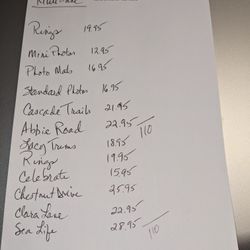 Rings 19.95
Mini Photos 12.95
Photo Mats 16.95
Standard Photos 16.95
Cascade Trails 21.95
Abbie Road 22.95 / 110
Lacy Trums 18.95
Rings 19.95
Celebrate 15.95
Chestnut Drive 25.95
Clara Lane 22.95
Sea Life 28.95 / 110